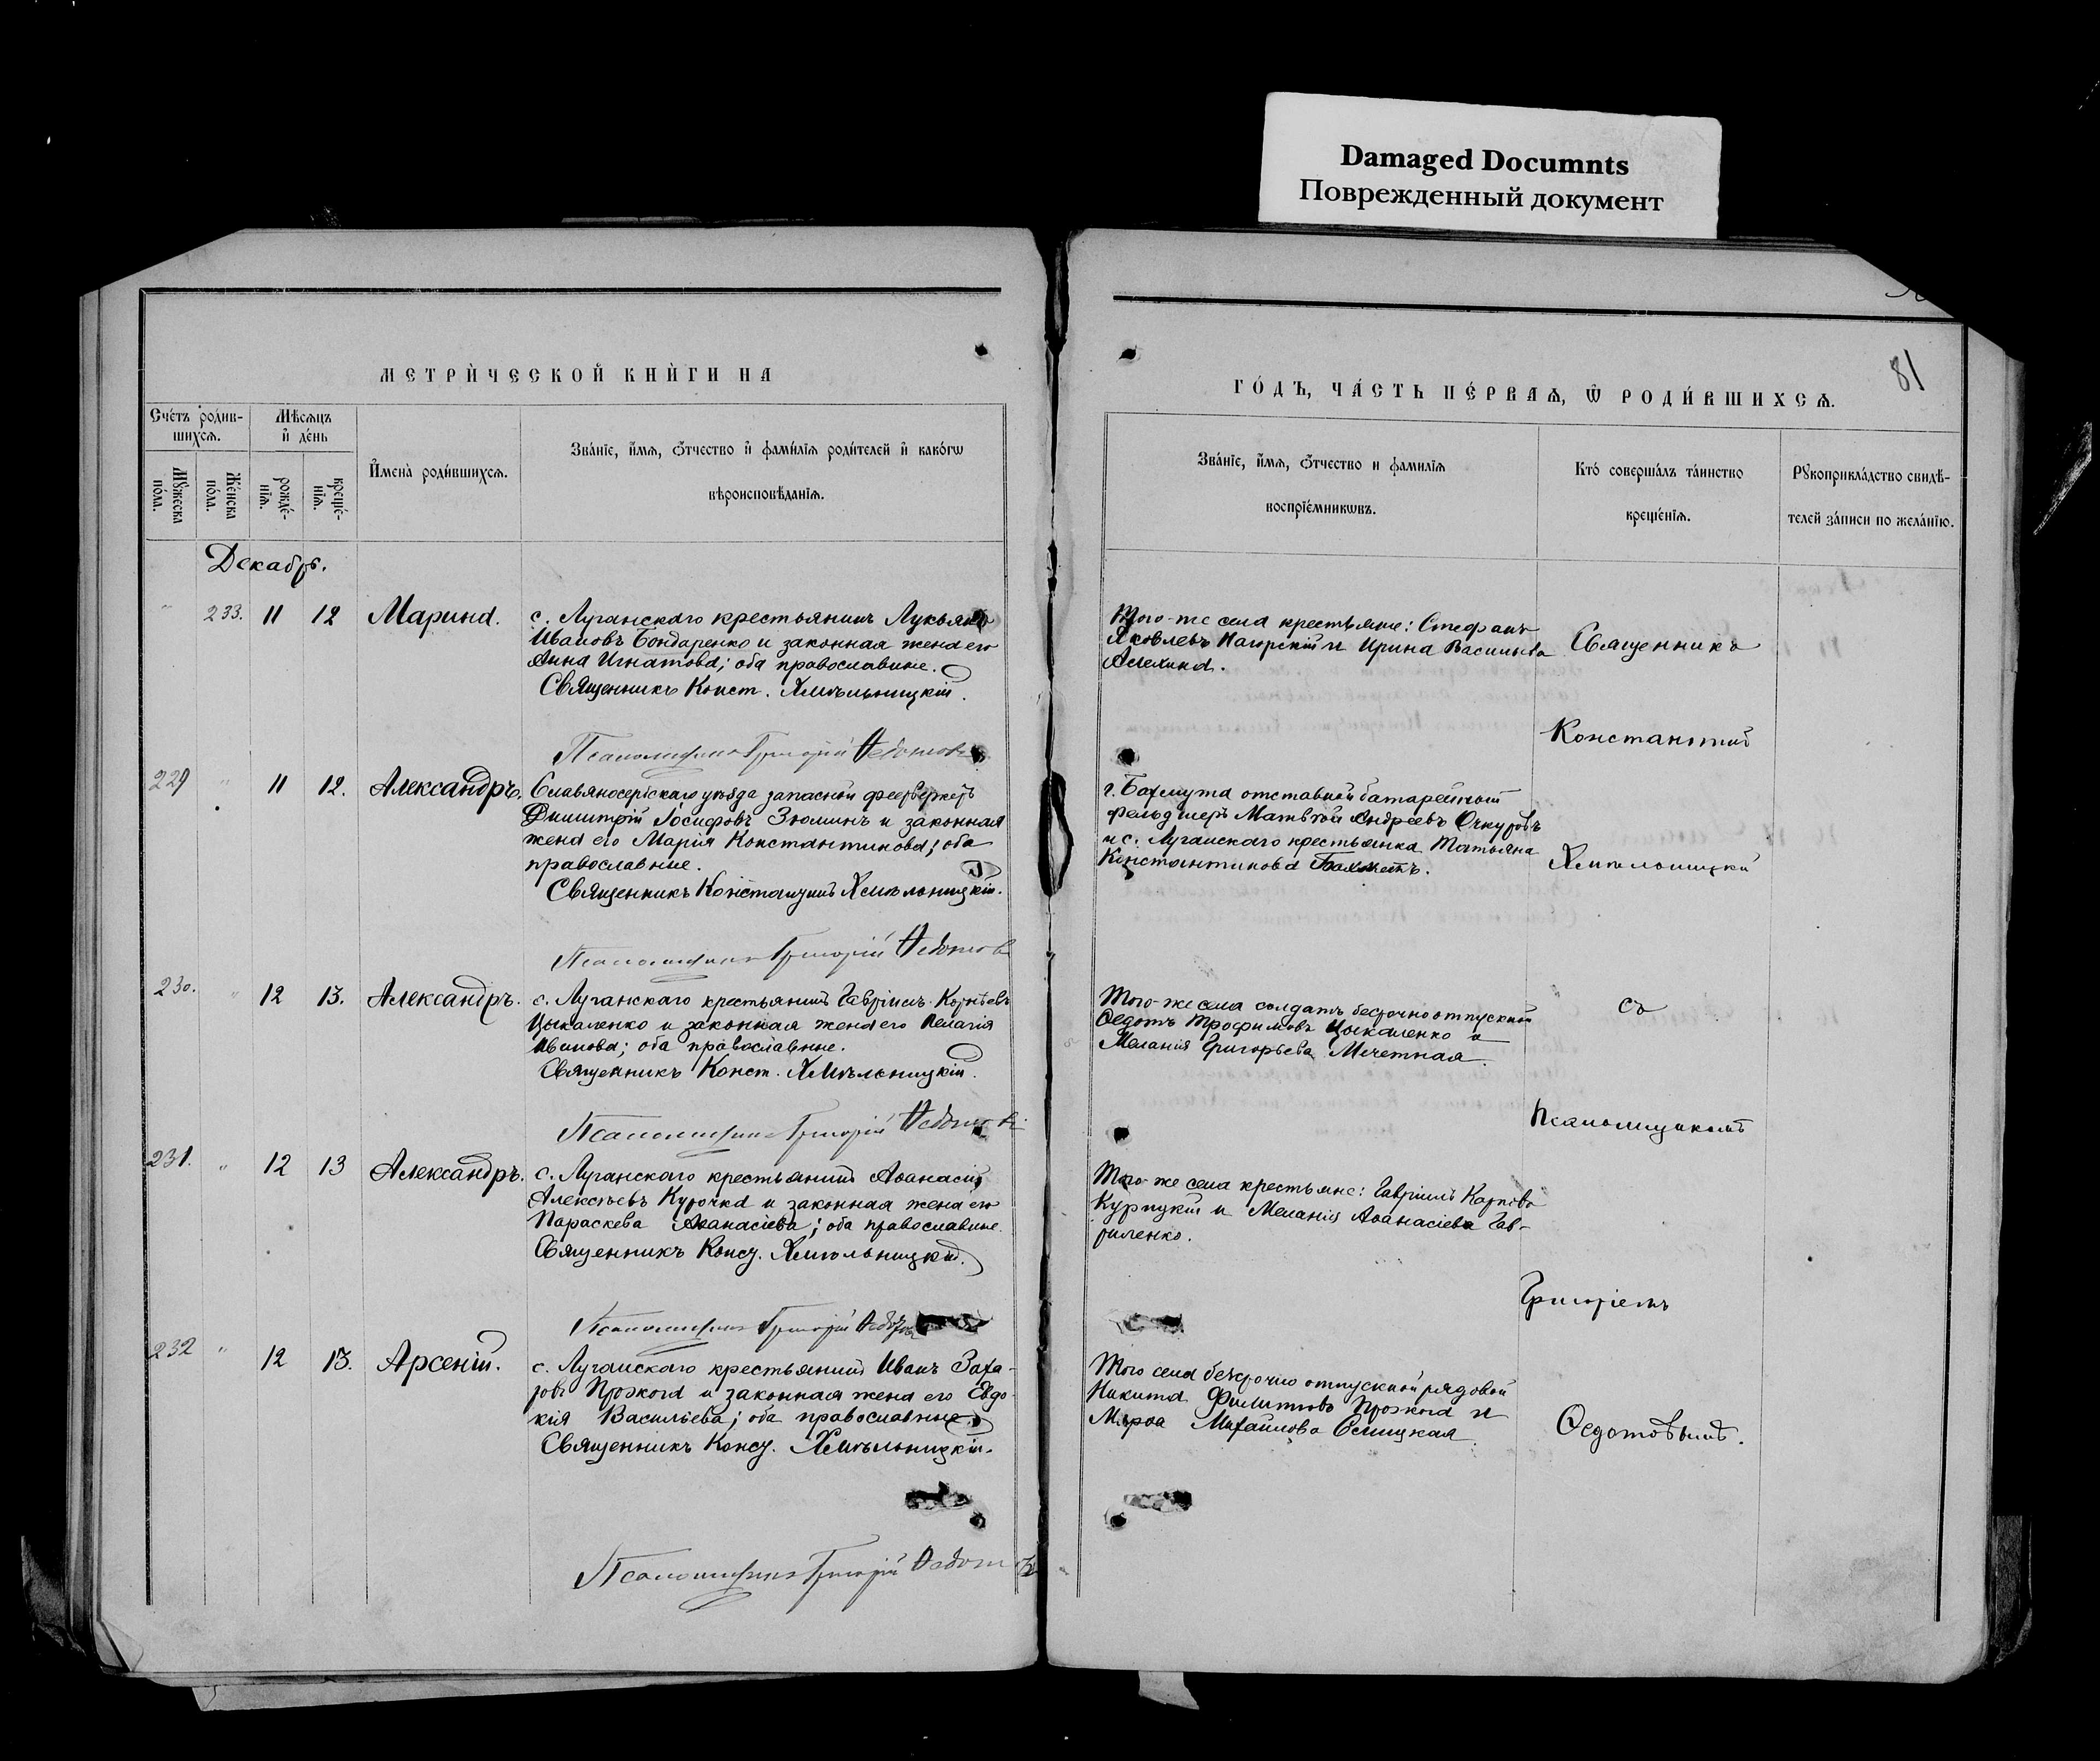 Damaged Documnts
Поврежденный документ
81
МЕТРИ́ЧЕСКОЙ КНИ́ГИ НА
ГО́ДЪ, ЧА́СТЬ ПЕ́РВАѦ, Ѡ РОДИ́ВШИХСѦ.
Сче́тъ роди́в-
шихсѧ.
Мꙋ́жеска
по́ла.
Же́нска
по́ла.
Мѣ́сѧцъ
и҆ де́нь
рожде́-
нїѧ.
креще́-
нїѧ.
И҆мена̀ роди́вшихсѧ.
Зва́нїе, и҆́мѧ, ѻ҆́тчество и҆ фами́лїѧ роди́телей и҆ како́гѡ
вѣроисповѣ́данїѧ.
Зва́нїе, и҆́мѧ, ѻ҆́тчество и фами́лїѧ
воспрїе́мникѡвъ.
Кто̀ соверша́лъ та́инство
креще́нїѧ.
Рꙋкоприкла́дство свидѣ́-
телей за́писи по жела́нїю.
Декабрь.
233. 11 12 Марина.
с. Луганскаго крестьянинъ Лукьянъ
Ивановъ Бондаренко и законная жена его
Анна Игнатова; оба православные.
Священникъ Конст. Хмѣльницкій.
Псаломщикъ Григорій Федотовъ
Того-же села крестьяне: Стефанъ
Яковлевъ Нагорскій и Ирина Васильева
Алехина.
229 " 11 12. Александръ.
Славяносербскаго уѣзда запасной феерверкеръ
Димитрій Іосифовъ Зюминъ и законная
жена его Марія Константинова; оба
православные.
Священникъ Константинъ Хмѣльницкій.
Псаломщикъ Григорій Федотовъ
г. Бахмута отставной батарейный
фельдшеръ Матвѣй Андреевъ Очкуровъ
и с. Луганскаго крестьянка Татьяна
Константинова
230. " 12 13. Александръ.
с. Луганскаго крестьянинъ Гавріилъ Корнѣевъ
Цыкаленко и законная жена его Пелагія
Иванова; оба православные.
Священникъ Конст. Хмѣльницкій.
Псаломщикъ Григорій Федотовъ
Того-же села солдатъ безсрочноотпускной
Ѳедотъ Трофимовъ Цыкаленко и
Меланія Григорьева Мечетная.
231. " 12 13 Александръ.
с. Луганскаго крестьянинъ Аѳанасій
Алексѣевъ Курочка и законная жена его
Параскева Аѳанасіева; оба православные.
Священникъ Конст. Хмѣльницкій.
Псаломщикъ Григорій Федотовъ
Того-же села крестьяне: Гавріилъ Карповъ
Курпцкій и Меланія Аѳанасіева Гав-
риленко.
232 " 12 13. Арсеній.
с. Луганскаго крестьянинъ Иванъ Заха-
ровъ Прожога и законная жена его Евдо-
кія Васильева; оба православные.
Священникъ Конст. Хмѣльницкій.
Псаломщикъ Григорій Федотовъ
Того села безсрочно отпускной рядовой
Никита Филиповъ Прожога и
Марѳа Михайлова
Священникъ
Константинъ
Хмѣльницкій
съ
Псаломщикомъ
Григоріемъ
Ѳедотовымъ.